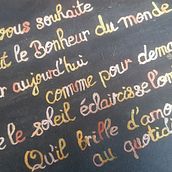 vous souhaite
t le Bonheur du monde
r aujourd'hui
comme pour dema
e le soleil éclaircisse
Qu'il brille d'amo
au quotidi